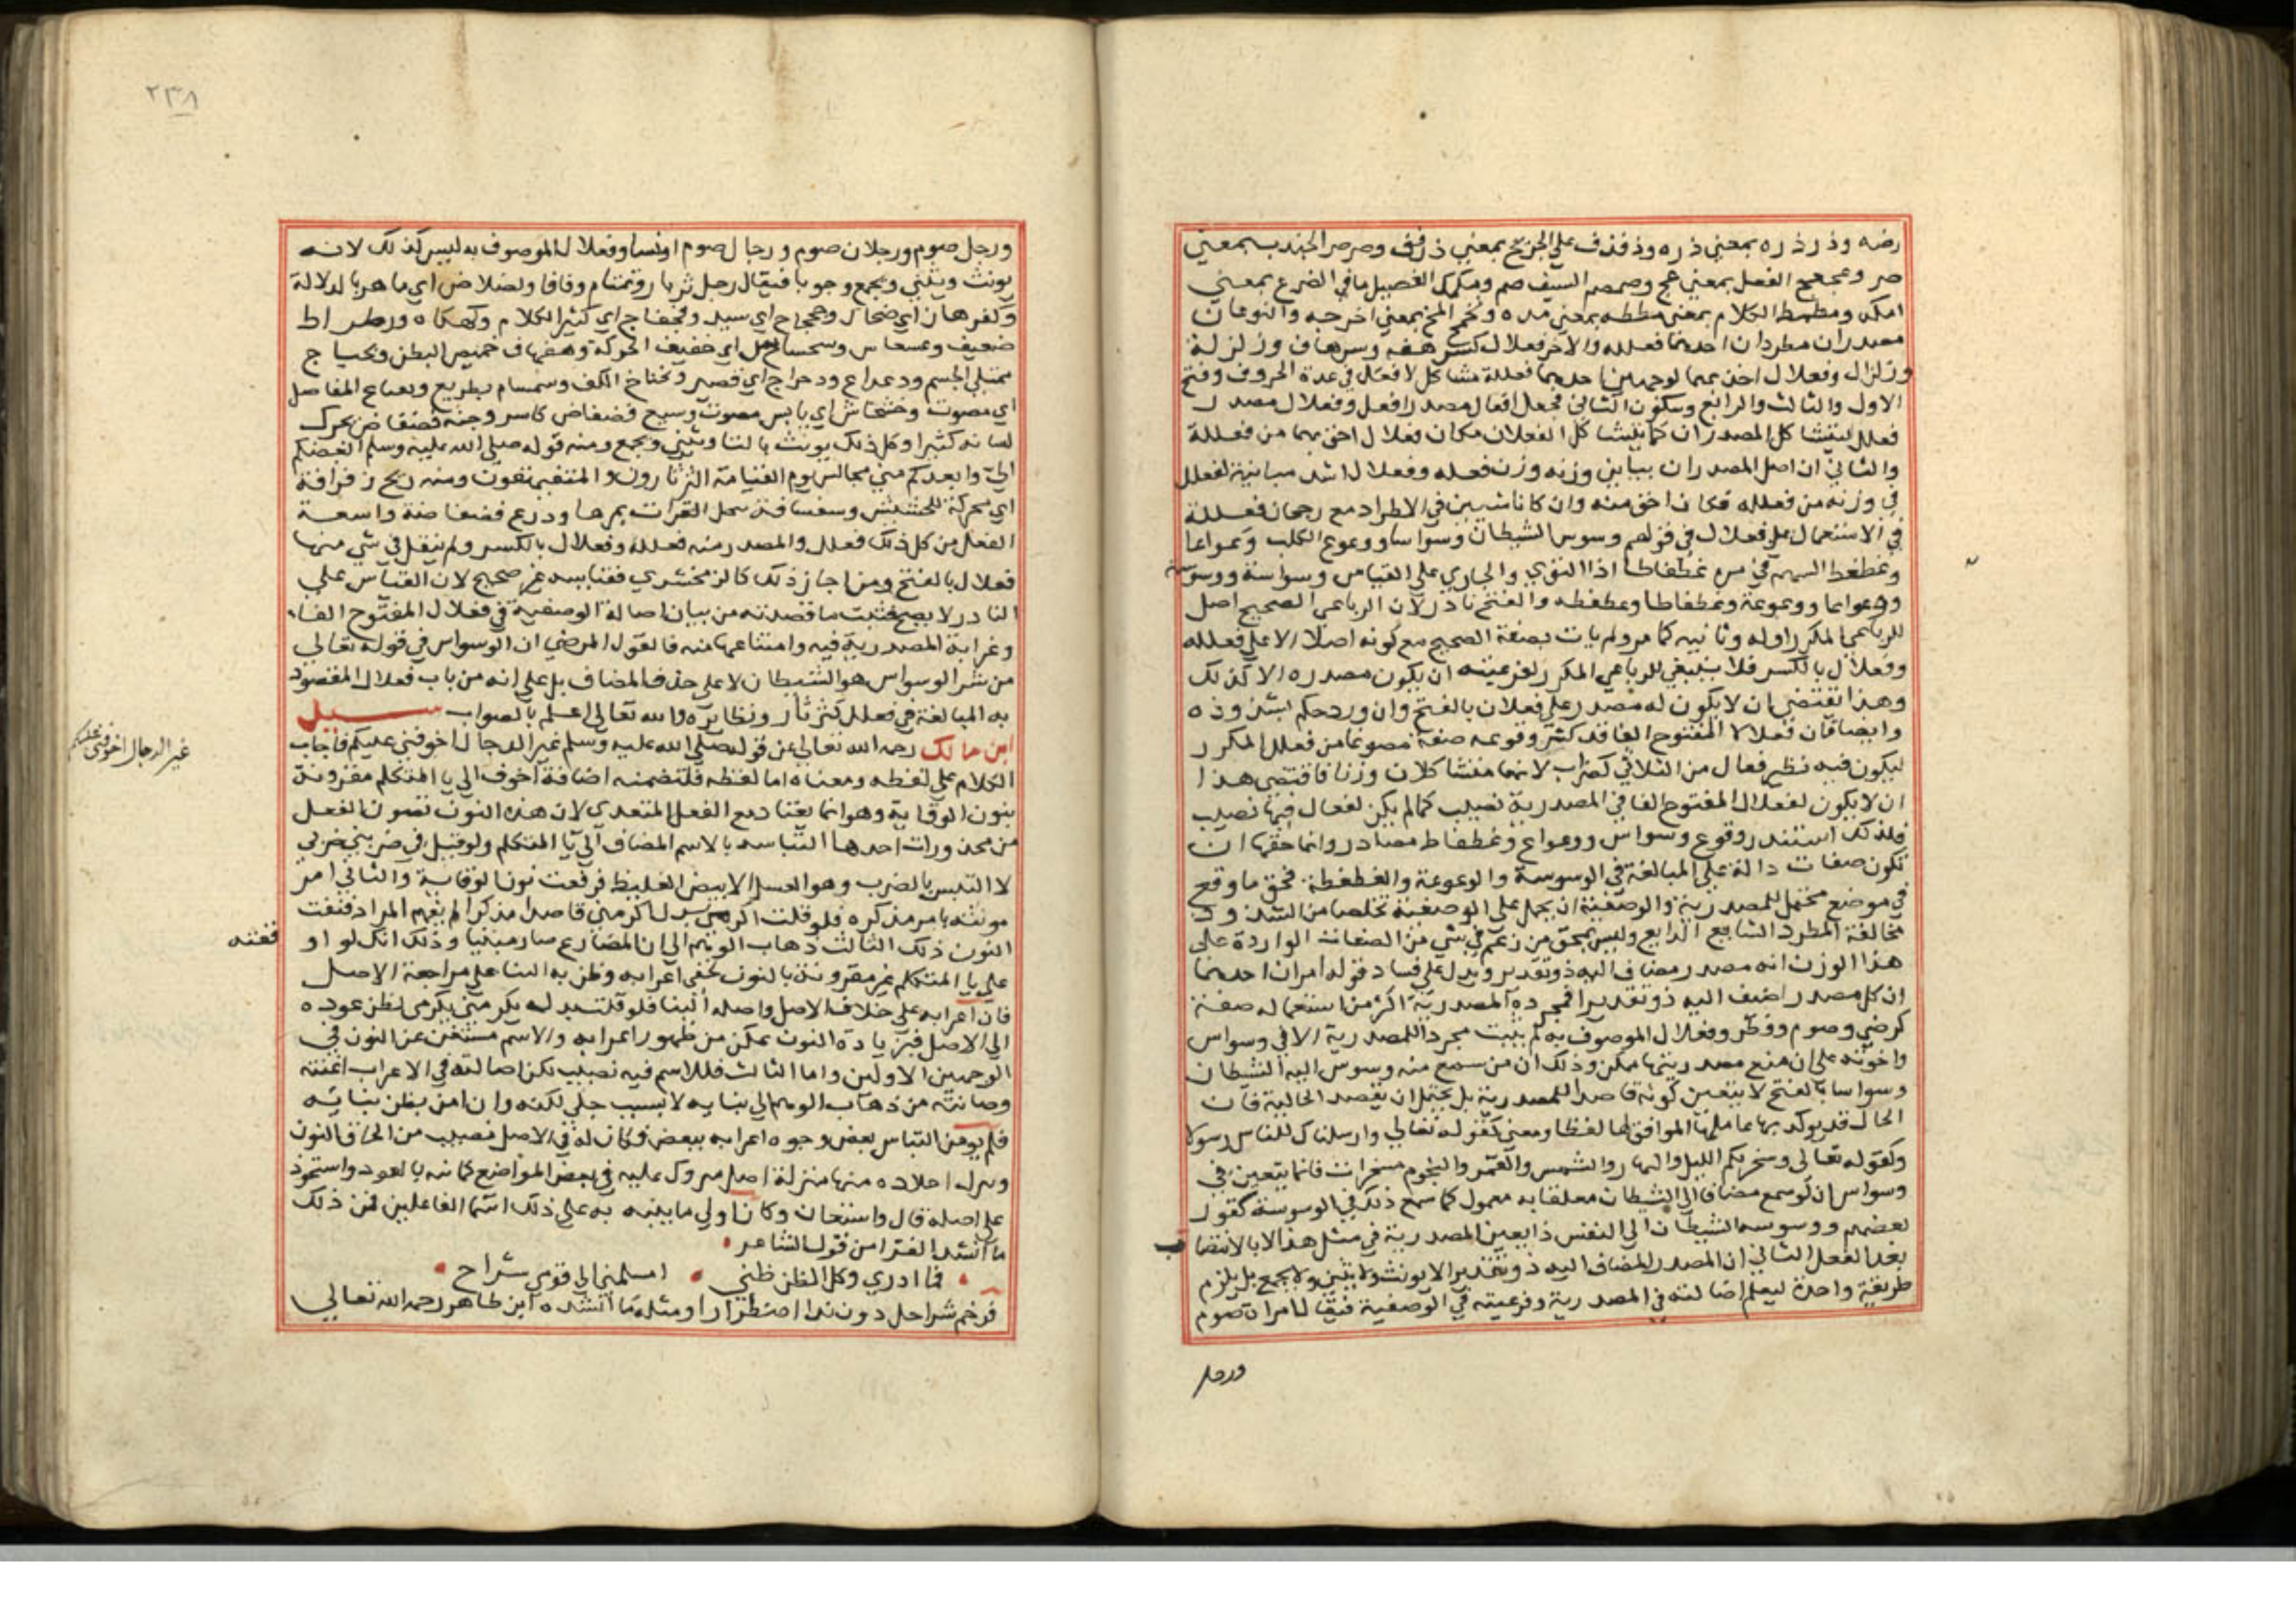 رضه وذرذره بمعني ذره وذفذف علي الجريح بمعني ذفف وصرصر الجندب بمعني
صر وعجعج الفحل بمعني عج وصمصم السيف صم ومكمك الفصيل ما في الضرع بمعني
امكه ومطمط الكلام بمعني مططه بمعني مده وتخمخ المخ بمعني اخرجه والنوعان
مصدران مطردان احدهما فعلله والاخر فعلال كسرهفه وسرهاف وزلزلة
وزلزال وفعلال احق بهما لوجهين احدهما فعللة مشاكل لافعال في عدة الحروف وفتح
الاول والثالث والرابع وسكون الثاني فجعل افعال مصدر افعل وفعلال مصدر
فعلل ليتشاكل المصدران كما يتشاكل الفعلان فكان فعلال احق بهما من فعللة
والثاني ان اصل المصدران يباين وزنه وزن فعله وفعلال اشد مباينة لفعلل
في وزنه من فعلله فكان احق منه وان كانا سيين في الاطراد مع رجحان فعللة
في الاستعمال علي فعلال في قولهم وسوس الشيطان وسواسا ووعوع الكلب وعواعا
وعظعظ السهم في مره عظعاظا اذا التوي والجاري علي القياس وسواسة ووسوسة
ووعواعا ووعوعة وعظعاظا وعظعظه والفتح نادر لان الرباعي الصحيح اصل
للرباعي المكرر اوله وثانيه كما مر ولم يات بصفة الصحيح مع كونه اصلا الا علي فعلله
وفعلال بالكسر فلا ينبغي للرباعي المكرر لفرعيته ان يكون مصدره الا كذلك
وهذا يقتضي ان لا يكون له مصدر علي فعلان بالفتح وان ورد حكم بشذوذه
وايضا فان فعلالا المفتوح الفا قد كثر وقوعه صفة مصوغا من فعلل المكرر
ليكون فيه نظير فعال من الثلاثي كضراب لانهما متشاكلان وزنا فاقتضي هذا
ان لا يكون لفعلال المفتوح الفا في المصدرية نصيب كما لم يكن لفعال فيها نصيب
فلذلك استندر وقوع وسواس ووعواع وعظعاظ مصادر وانما حقها ان
تكون صفات دالة علي المبالغة في الوسوسة والوعوعة والعظعظة فحق ما وقع
في موضع محتمل للمصدرية والوصفية ان يحمل علي الوصفية تخلصا من الشذوذ
مخالفة المطرد الشايع الذايع وليس بمحق من زعم في شي من الصفات الواردة علي
هذا الوزن انه مصدر مضاف اليه ذو تقدير ويدل علي فساد قوله امران احدهما
ان كل مصدر اضيف اليه ذو تقديرا فمجرده المصدرية اكثر من استعماله صفة
كرضي وصوم وفطر وفعلال الموصوف به لم يثبت مجردا للمصدرية الا في وسواس
واخوته علي ان منع مصدريتها ممكن وذلك ان من سمع منه وسوس اليه الشيطان
وسواسا بالفتح لا يتعين كونه قاصدا للمصدرية بل يحتمل ان يقصد الحالية فان
الحال قد يوكد بها عاملها الموافق لها لفظا ومعني كقوله تعالي وارسلناك للناس رسولا
وكقوله تعالي وسخر لكم الليل والنهار والشمس والقمر والنجوم مسخرات فانما يتعين في
وسواس ان لو سمع مضافا الي الشيطان معلقا به معمول كما سمع ذلك في الوسوسة كقول
بعضهم ووسوسه الشيطان الي النفس ذا يعين المصدرية في مثل هذا الا بالانتصاب
بعد الفعل الثاني ان المصدر المضاف اليه ذو تقديرا لا يونث ولا يثني ولا يجمع بل يلزم
طريقة واحدة ليعلم اصالته في المصدرية وفرعيته في الوصفية فيقال امراة صوم
ورجل
٢٣٨
ورجل صوم ورجلان صوم ورجال صوم او نسا وفعلال الموصوف به ليس كذلك لانه
يونث ويثني ويجمع وجوبا فيقال رجل ثرثار وتمتام وفافا ولضلاض اي ماهر بالدلالة
وكفرهان اي ضحاك وهجهاج اي سيد وفجفاج اي كثير الكلام وكهكاه ورطراط
ضعيف وعسعاس وسحساح اي خفيف الحركة وهفهاف خميص البطن وبجباج
ممتلي الجسم ودعداع ودحراح اي قصير وتختاخ الكف وسمسام سريع وبعباع المفاصل
اي مصوت وخشخاش اي يابس مصوت وسبع قضقاض كاسر وحية نضناض يحرك
لسانه كثيرا وكل ذلك يونث بالتا ويثني ويجمع ومنه قوله صلي الله عليه وسلم ابغضكم
الي وابعدكم مني مجالس يوم القيامة الثرثارون المتفيهقون ومنه ريح زفزافة
اي محركة للحشيش وسفسافة تنخل التراب بمرها ودرع فضفاضة واسعة
الفعل من كل ذلك فعلل والمصدر منه فعللة وفعلال بالكسر ولم ينقل في شي منها
فعلال بالفتح ومن اجاز ذلك كالزمخشري فقياسه غير صحيح لان القياس علي
النادر لا يصح فثبت ما قصدته من بيان اصالة الوصفية في فعلال المفتوح الفاء
وغرابة المصدرية فيه وامتناعها منه فالقول المرضي ان الوسواس في قوله تعالي
من شر الوسواس هو الشيطان لا علي حذف المضاف بل علي انه من باب فعلال المقصود
به المبالغة في فعلل كثرثار ونظايره والله تعالي اعلم بالصواب سيل
ابن مالك رحمه الله تعالي عن قوله صلي الله عليه وسلم غير الدجال اخوفني عليكم فاجاب
غير الدجال اخوفني عليكم
الكلام علي لفظه ومعناه اما لفظه فلتضمنه اضافة اخوف الي يا المتكلم مقرونة
بنون الوقاية وهو انما يعتاد مع الفعل المتعدي لان هذه النون تصون الفعل
من محذورات احدها التباسه بالاسم المضاف الي يا المتكلم ولو قيل في ضربني ضربي
لا التبس بالضرب وهو العسل الابيض الغليظ فرفعت نون الوقاية والثاني امر
مونثه بامر مذكره فلو قلت اكرمي بدل اكرمني قاصدا مذكرا لم يفهم المراد فنفت
النون ذلك الثالث ذهاب الوهم الي ان المضارع صار مبنيا وذلك انك لو او
قعته
علي يا المتكلم غير مقرونة بالنون لخفي اعرابه وظن به البنا علي مراجعة الاصل
فان اعرابه علي خلاف الاصل واصله البنا فلو قلت بدل يكرمني يكرمي لظن عوده
الي الاصل فبزيادة النون تمكن من ظهور اعرابه والاسم مستغن عن النون في
الوجهين الاولين واما الثالث فللاسم فيه نصيب لكن اصالته في الاعراب اغنته
وصانته من ذهاب الوهم الي بنايه لا بسبب جلي لكنه وان امن بظن بنايه
فلم يومن التباس بعض وجوه اعرابه ببعض وكان له في الاصل نصيب من الحاق النون
ونزل اخلاه منها منزلة اصل متروك عليه في بعض المواضع كما نبه بالعود واستحوذ
علي اصله قال واستحان وكان اولي ما ينبه به علي ذلك اسما الفاعلين فمن ذلك
ما انشد الفرا من قول الشاعر
فما ادري وكل الظن ظني امسلمني الي قومي شراح
فرخم شراحل دون ندا اضطرارا ومثله ما انشده ابن طاهر رحمه الله تعالي